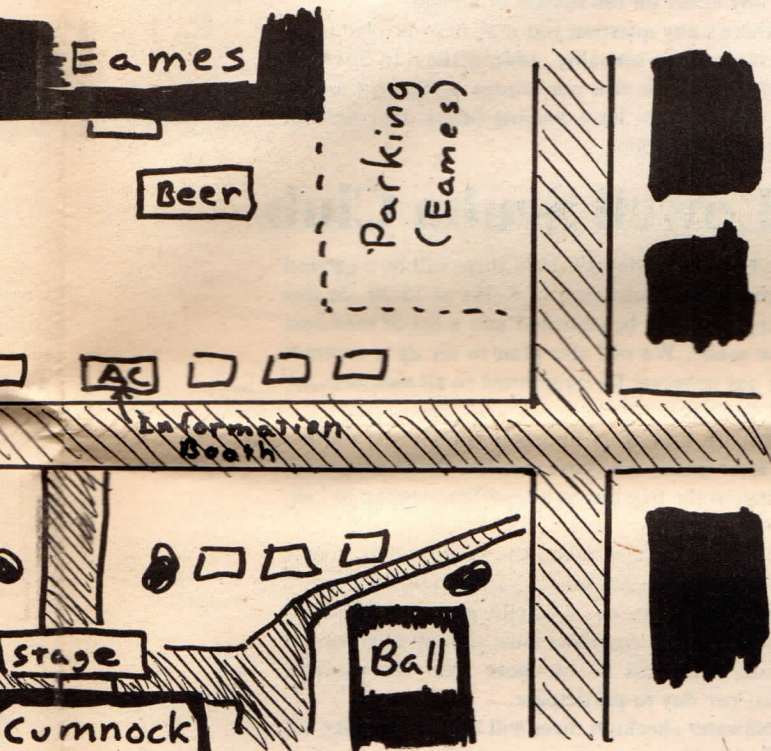 Eames
Parking
(Eames)
Beer
AC
Information
Booth
Stage
Ball
Cumnock